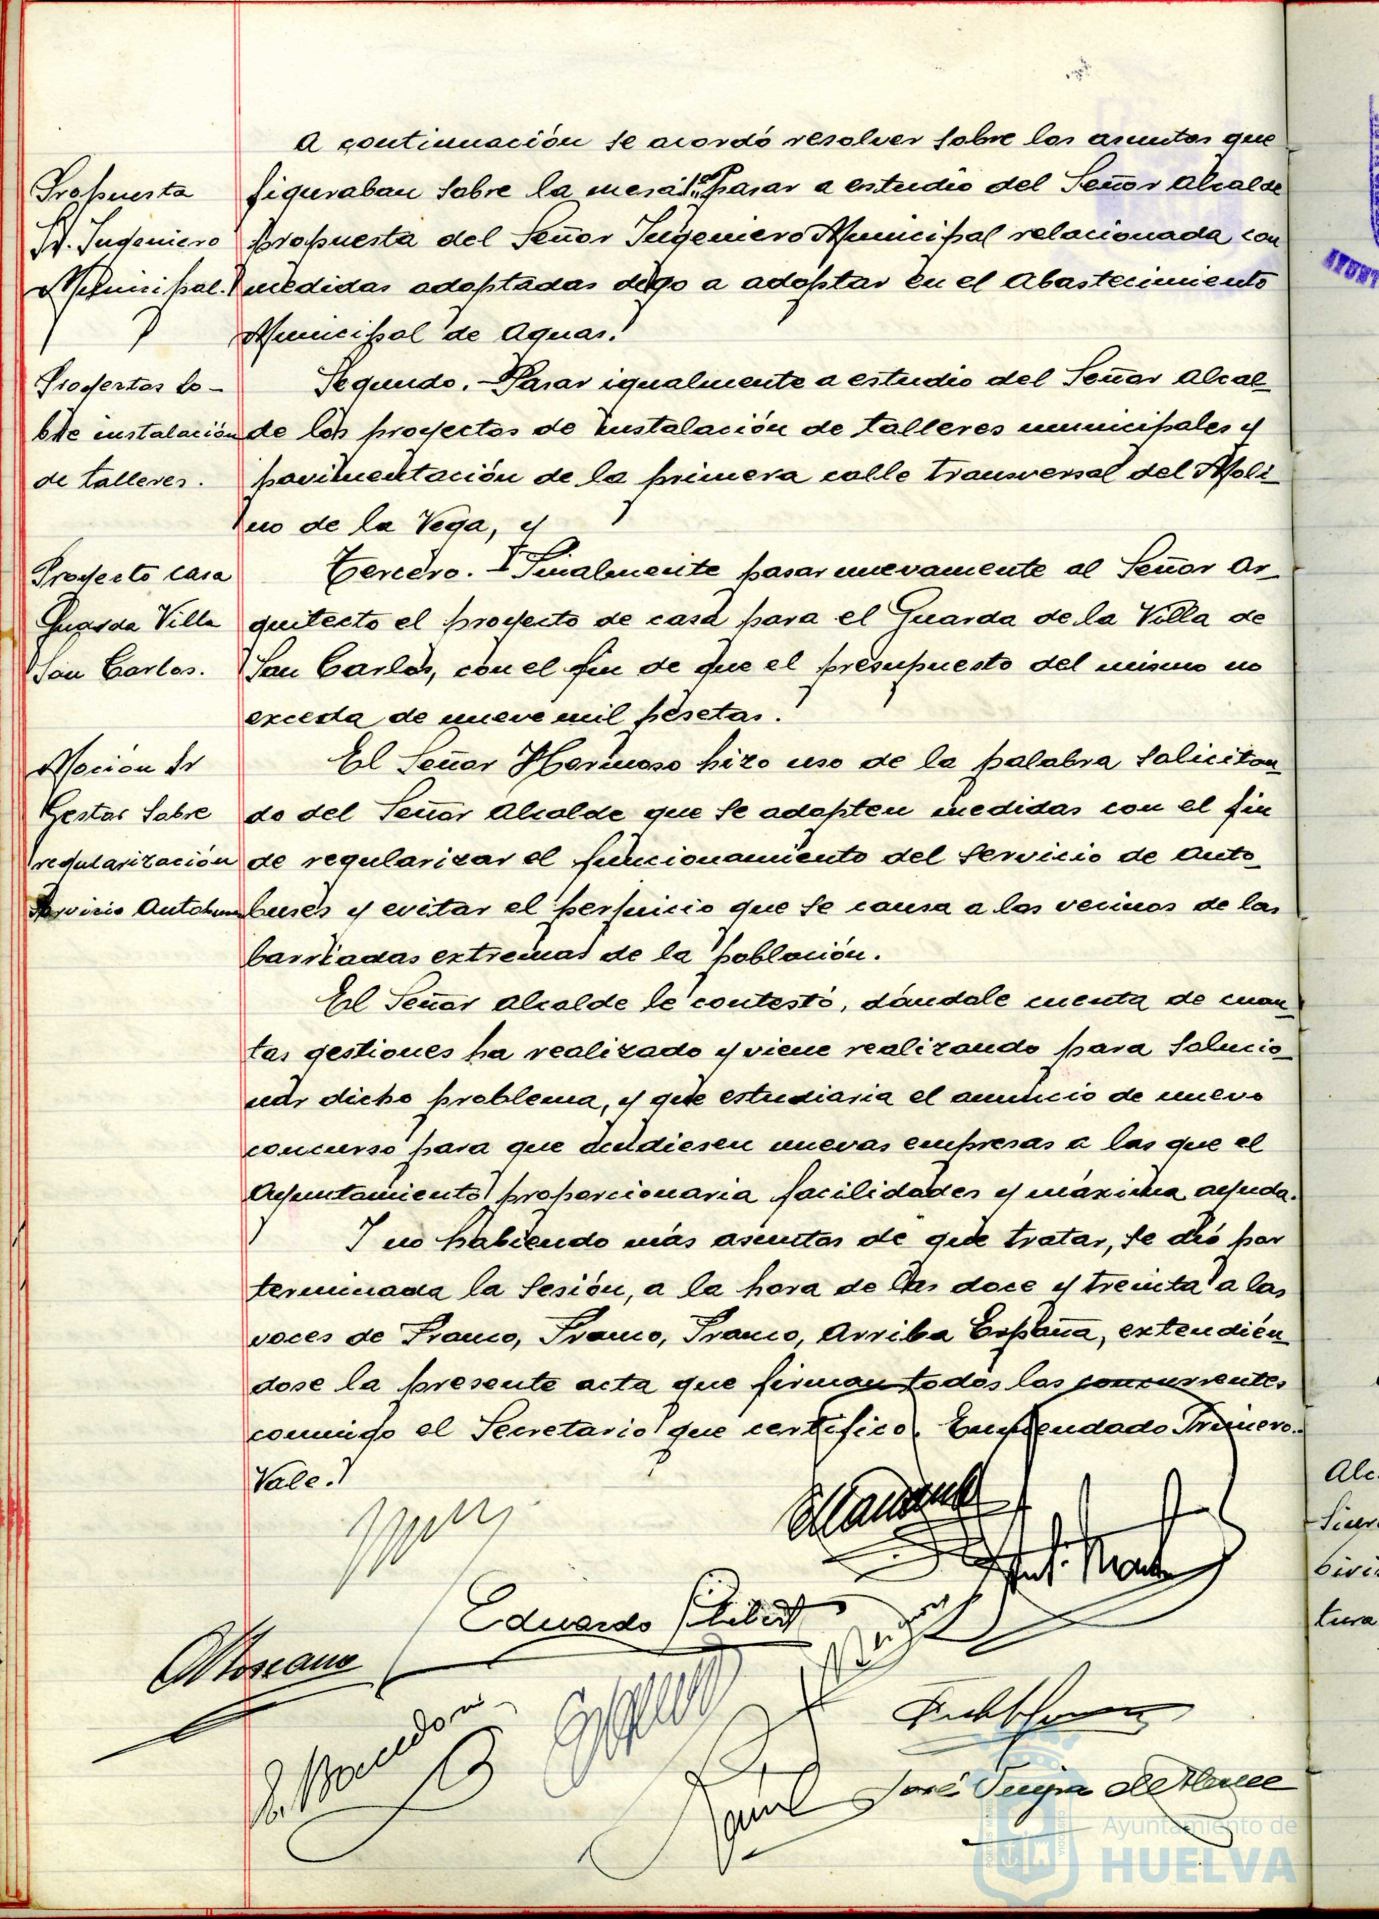 A continuación se acordó resolver sobre los asuntos que
Propuesta
Sr. Ingeniero
Municipal.
figuraban sobre la mesa: 1º Pasar a estudio del Señor Alcalde
propuesta del Señor Ingeniero Municipal relacionada con
medidas adoptadas digo a adoptar en el Abastecimiento
Municipal de Aguas.
Proyectos so-
bre instalación
de talleres.
Segundo. - Pasar igualmente a estudio del Señor Alcal-
de los proyectos de instalación de talleres municipales y
pavimentación de la primera calle transversal del Moli-
no de la Vega, y
Proyecto casa
Guarda Villa
San Carlos.
Tercero. - Finalmente pasar nuevamente al Señor Ar-
quitecto el proyecto de casa para el Guarda de la Villa de
San Carlos, con el fin de que el presupuesto del mismo no
exceda de nueve mil pesetas.
Moción Sr
Gestor sobre
regularización
servicio Autobuses
El Señor Hermoso hizo uso de la palabra solicitan-
do del Señor Alcalde que se adopten medidas con el fin
de regularizar el funcionamiento del servicio de Auto-
buses y evitar el perjuicio que se causa a los vecinos de las
barriadas extremas de la población.
El Señor Alcalde le contestó, dándole cuenta de cuan-
tas gestiones ha realizado y viene realizando para solucio-
nar dicho problema, y que estudiaria el anuncio de nuevo
concurso para que acudiesen nuevas empresas a las que el
Ayuntamiento proporcionaria facilidades y máxima ayuda.
Y no habiendo más asuntos de que tratar, se dió por
terminada la sesión, a la hora de las doce y treinta a las
voces de Franco, Franco, Franco, Arriba España, extendién-
dose la presente acta que firman todos los concurrentes
conmigo el Secretario que certifico. Enmendado Primero.-
Vale.
Eduardo
José
Ayuntamiento de
HUELVA
Alc